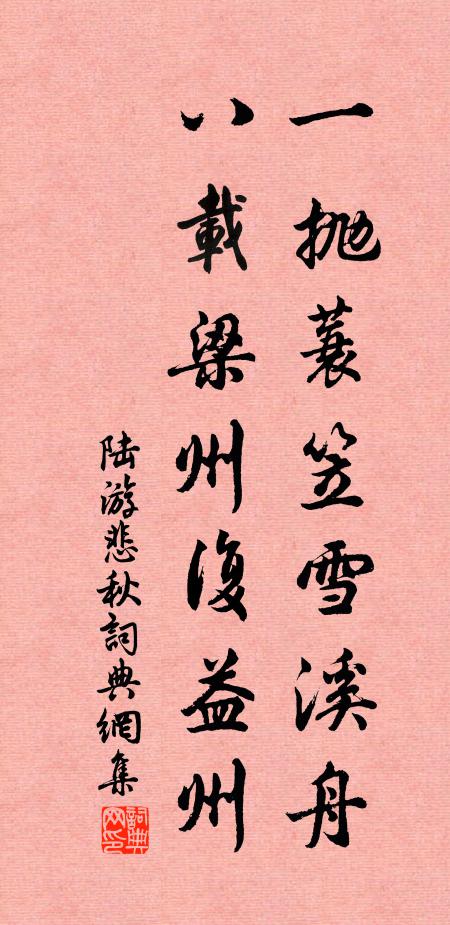 一抛蓑笠雪溪舟
八載梁州復益州
陆游悲秋詞典網集
詞典网印